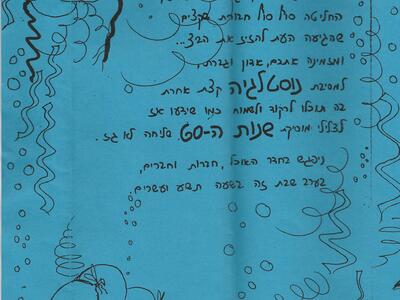 החליטה סוף סוף חבורת שקצים,
שהגיעה העת להזיז את הביצ...
ומזמינה אתכם, אדון וגברת,
למסיבת נוסטלגיה קצת אחרת
בה תוכלו לרקוד ולשמוח כמו שידעו אז
לצלילי מוסיקת שנות ה-60. סליחה לא גז.
ניפגש בחדר האוכל, חברות וחברים,
בערב שבת זה בשעה תשע ועשרים.